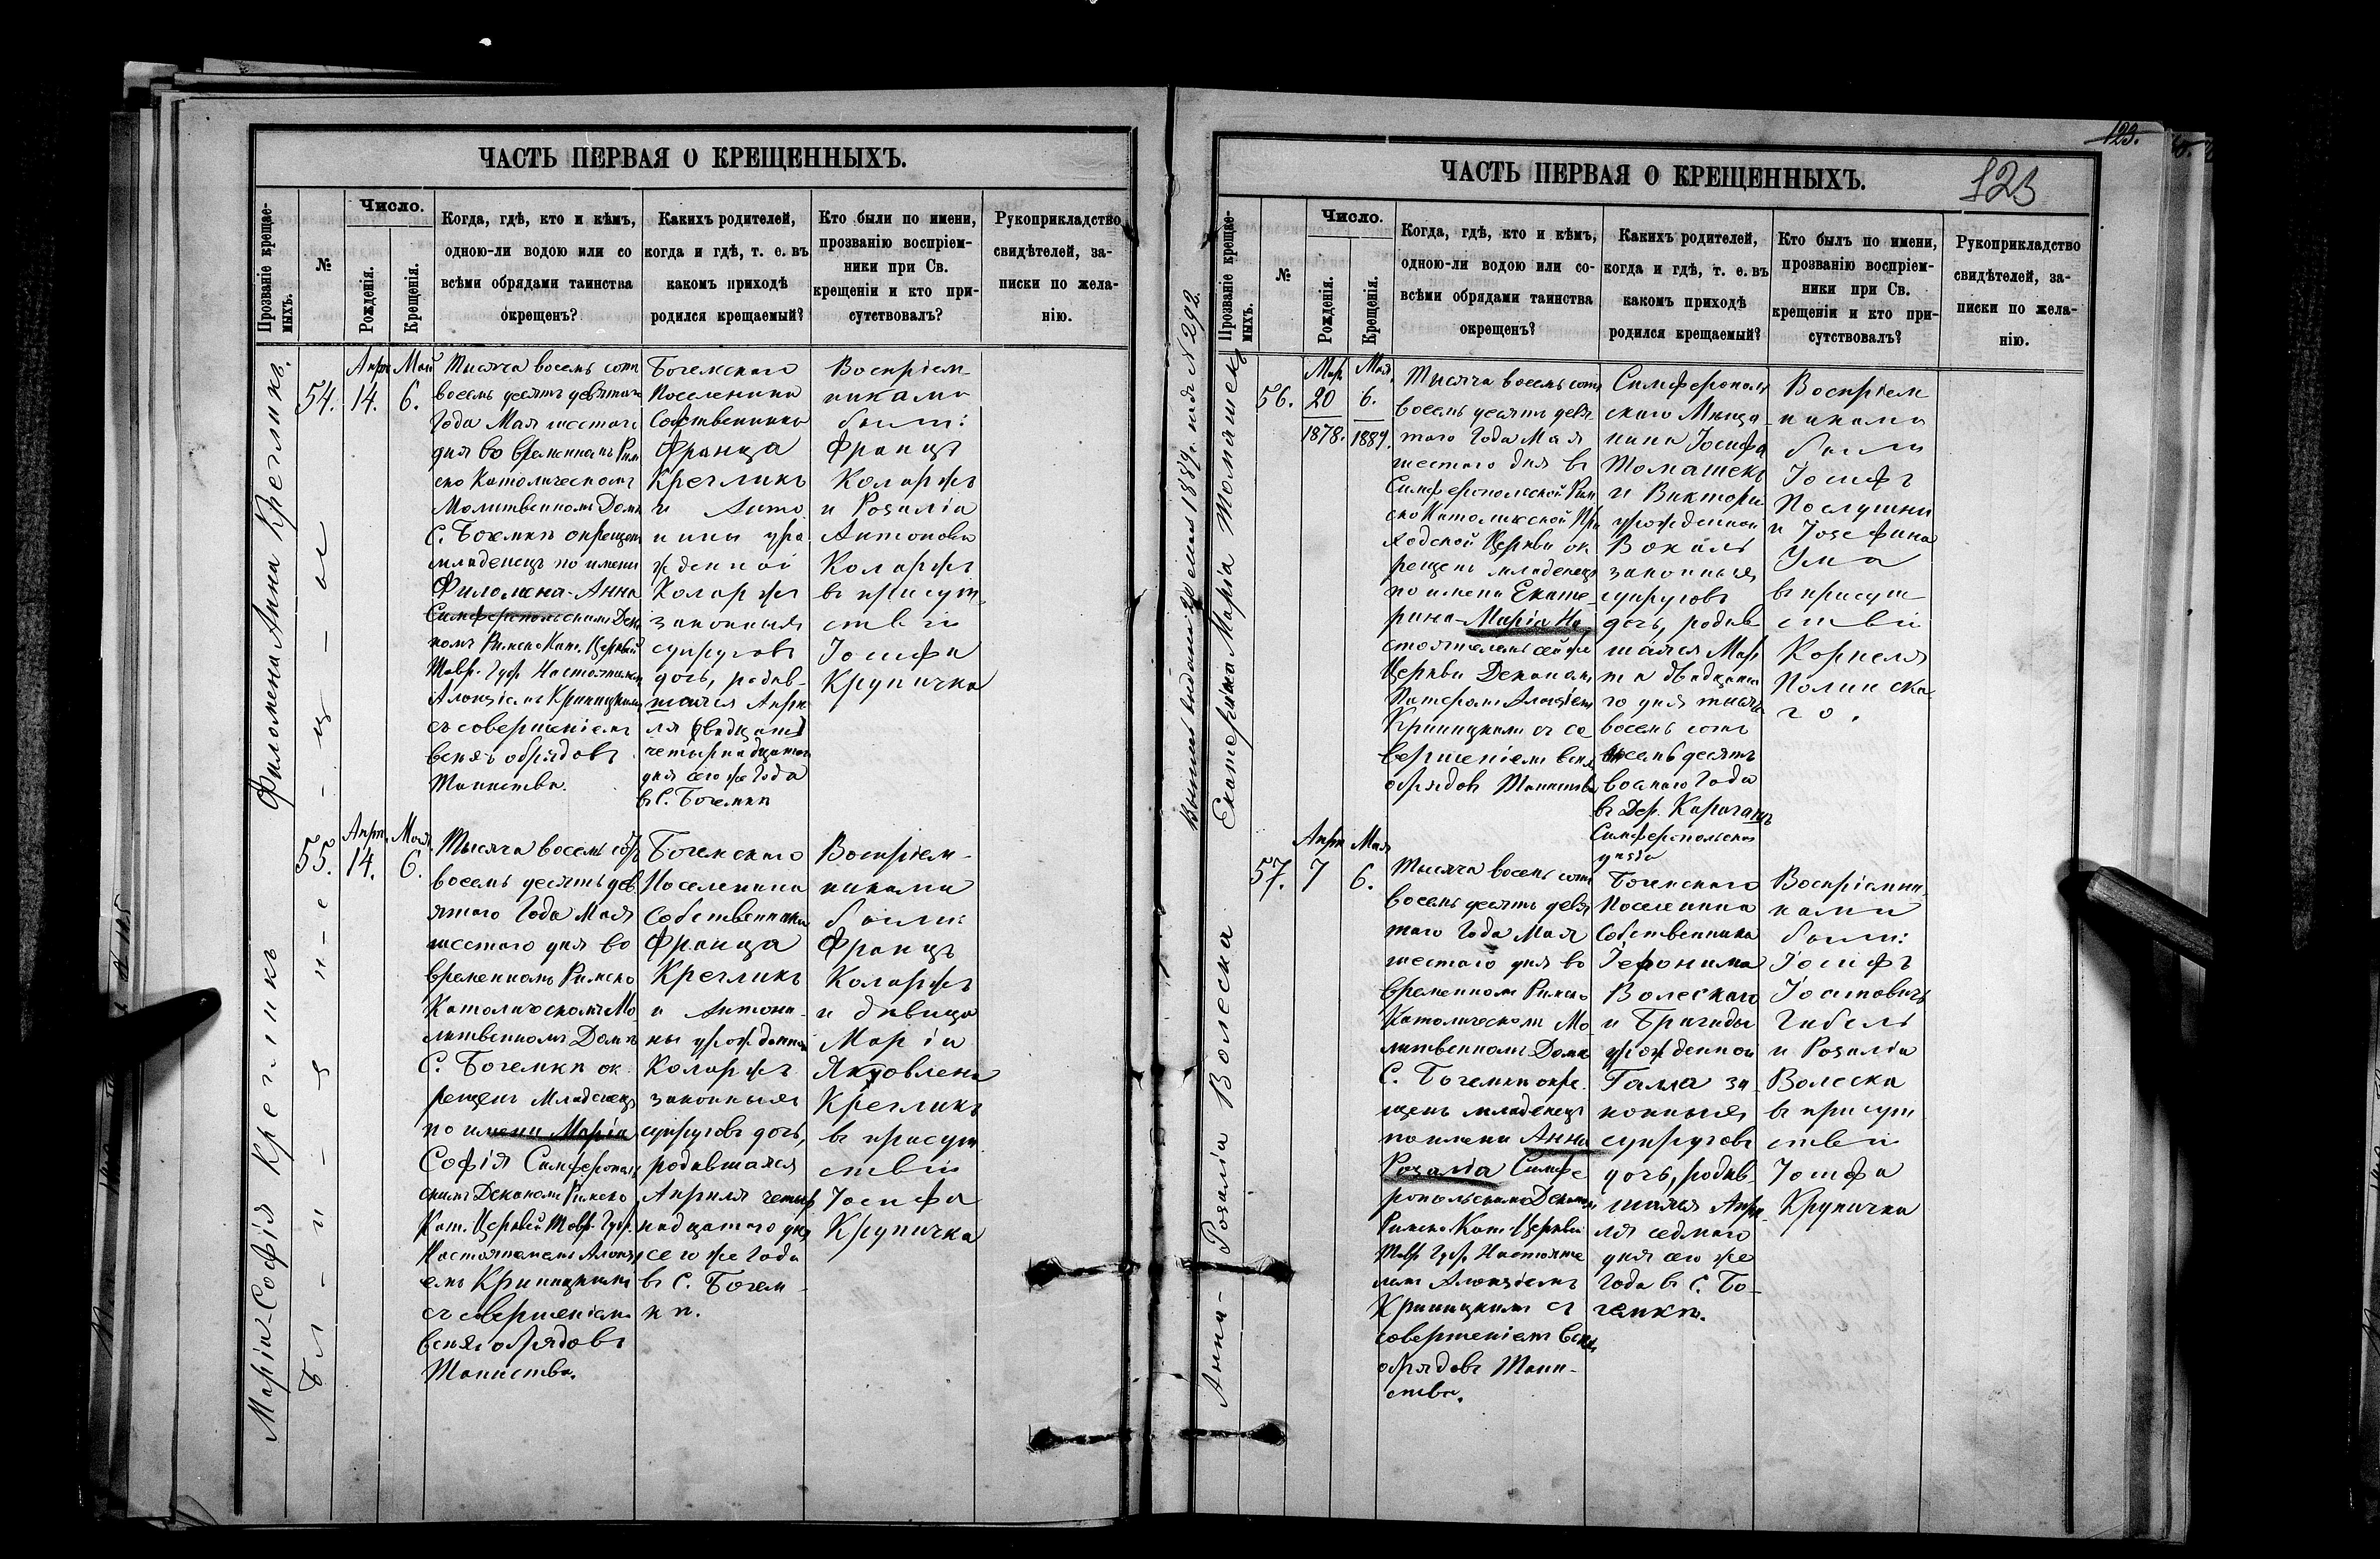 ЧАСТЬ ПЕРВАЯ О КРЕЩЕННЫХЪ.
Прозваніе крещае-
мыхъ.
№
Число.
Рожденія.
Крещенія.
Когда, гдѣ, кто и кѣмъ,
одною-ли водою или со
всѣми обрядами таинства
окрещенъ?
Какихъ родителей,
когда и гдѣ, т. е. въ
какомъ приходѣ
родился крещаемый?
Кто были по имени,
прозванію воспріем-
ники при Св.
крещеніи и кто при-
сутствовалъ?
Рукоприкладство
свидѣтелей, за-
писки по жела-
нію.
Филомена Анна Крегликъ.
54.
Апр.
14.
Май
6.
Тысяча восемь сотъ
восемь десятъ девятаго
Года Мая шестаго
дня во временномъ Рим
ско Католическомъ
Молитвенномъ Домѣ
С. Богемкѣ окрещенъ
младенецъ по имени
Филомена-Анна
Симферопольскимъ Дека
номъ Римско Кат. Церквей
Тавр. Губ. Настоятелемъ
Алоизіемъ Криницкимъ
съ совершеніемъ
всѣхъ обрядовъ
Таинства.
Богемскаго
Поселенина
Собственника
Франца
Крегликъ
и Анто
нины уро
жденной
Коларжъ
законныхъ
супруговъ
дочь, родив-
шаяся Апрѣ
ля
четырнадцатаго
дня сего же Года
въ С. Богемкѣ
Воспріем-
никами
были:
Францъ
Коларжъ
и Розалія
Антонова
Коларжъ
въ присут
ствіи
Іосифа
Крупичка
Марія-Софія Крегликъ
55.
Апр.
14.
Мая.
6.
Тысяча восемь сотъ
восемь десятъ дев
ятаго Года Мая
шестаго дня во
временномъ Римско
Католическомъ Мо
литвенномъ Домѣ
С. Богемкѣ ок
рещенъ Младенецъ
по имени Марія
Софія Симферополь
скимъ Деканомъ Римско
Кат. Церквей Тавр. Губ.
Настоятелемъ Алоизі
емъ Криницкимъ
съ совершеніемъ
всѣхъ обрядовъ
Таинства.
Богемскаго
Поселенина
Собственника
Франца
Крегликъ
и Антони-
ны урожденной
Коларжъ
законныхъ
супруговъ дочь,
родившаяся
Апрѣля четыр
надцатаго дня
сего же Года
въ С. Богем-
кѣ.
Воспріем-
никами
были:
Францъ
Коларжъ
и дѣвица
Марія
Яковлена
Крегликъ
въ присут
ствіи
Іосифа
Крупичка
123.
123
ЧАСТЬ ПЕРВАЯ О КРЕЩЕННЫХЪ.
Прозваніе крещае-
мыхъ.
№
Число.
Рожденія.
Крещенія.
Когда, гдѣ, кто и кѣмъ,
одною-ли водою или со-
всѣми обрядами таинства
окрещенъ?
Какихъ родителей,
когда и гдѣ, т. е. въ
какомъ приходѣ
родился крещаемый?
Кто былъ по имени,
прозванію воспріем-
ники при Св.
крещеніи и кто при-
сутствовалъ?
Рукоприкладство
свидѣтелей, за-
писки по жела-
нію.
1889 г. подъ N 292.
Екатерина Марія Томашекъ
56.
Мар.
20
1878.
Мая.
6.
1889.
Тысяча восемь сотъ
восемь десятъ девя
таго Года Мая
шестаго дня въ
Симферопольской Рим
ско Католикской При
ходской Церкви ок
рещенъ младенецъ
по имени Екате-
рина-Марія На
стоятелемъ сей же
Церкви Деканомъ
Патеромъ Алоизіемъ
Криницкимъ съ со
вершеніемъ всѣхъ
обрядовъ Таинства
Симферополь
скаго Мѣща
нина Іосифа
Томашекъ
и Викторіи
урожденной
Вокалъ
законныхъ
супруговъ
дочь, родив
шаяся Мар
та двадцата
го дня тысяча
восемь сотъ
восемь десятъ
восмаго Года
въ Дер. Карагачъ
Симферопольскаго
уѣзда
Воспріем
никами
были
Іосифъ
Послушни
и Іозефина
Ума
въ присут-
ствіи
Корнеля
Полинска
го.
Анна-Розалія Волеска
57.
Апр.
7
Мая
6.
Тысяча восемь сотъ
восемь десятъ девя
таго Года Мая
шестаго дня во
временномъ Римско
Католическомъ Мо
литвенномъ Домѣ
С. Богемкѣ окре
щенъ младенецъ
по имени Анна
Розалія Симфе
ропольскимъ Деканомъ
Римско Кат. Церквей
Тавр. Губ. Настояте
лемъ Алоизіемъ
Криницкимъ съ
совершеніемъ всѣхъ
обрядовъ Таин-
ства.
Богемскаго
Поселенина
Собственника
Іеронима
Волескаго
и Бригиды
урожденной
Галла за
конныхъ
супруговъ
дочь, родив-
шаяся Апрѣ
ля седмаго
дня сего же
Года въ С. Бо-
гемкѣ.
Воспріемни
ками
были:
Іосифъ
Іосифовичъ
Гибель
и Розалія
Волеска
въ присут
ствіи
Іосифа
Крупичка